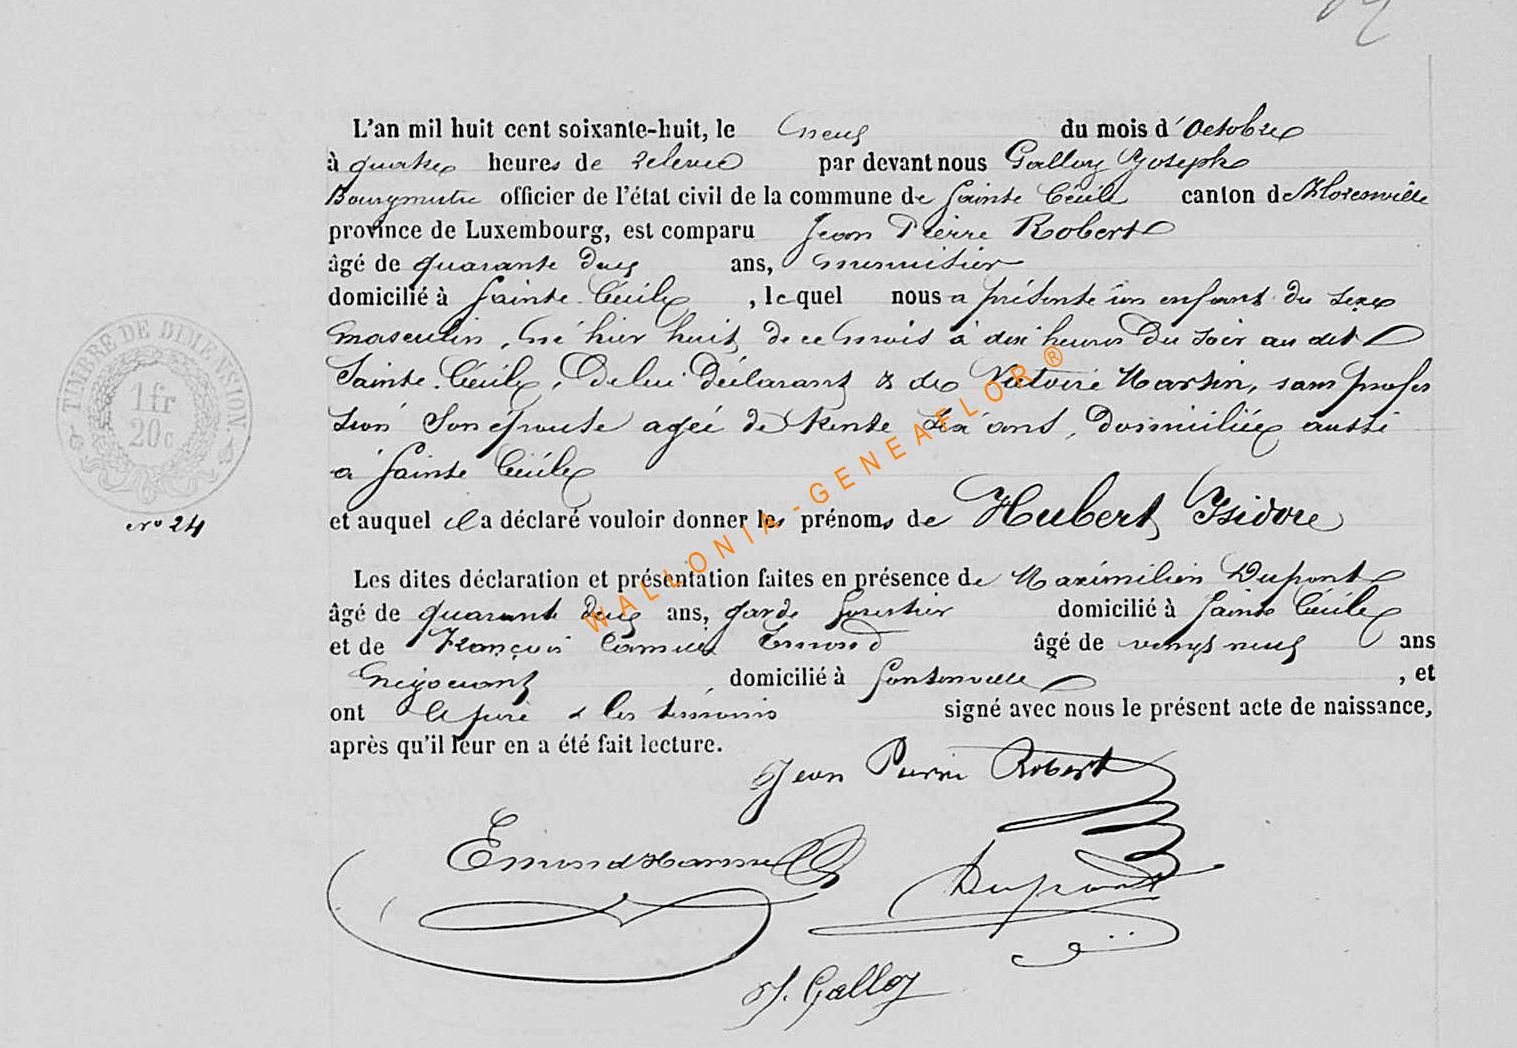 L'an mil huit cent soixante-huit, le neuf du mois d'Octobre
à quatre heures de relevée par devant nous Galloy Joseph
Bourgmestre officier de l'état civil de la commune de Sainte Cécile canton de Florenville
province de Luxembourg, est comparu Jean Pierre Robert
âgé de quarante deux ans, menuisier
domicilié à Sainte Cécile, lequel nous a présenté un enfant du sexe
masculin, né hier huit de ce mois à dix heures du soir au dit
Sainte Cécile, de lui déclarant & de Victoire Martin, sans profes
sion son épouse agée de trente ans, domiciliée aussi
à Sainte Cécile
TIMBRE DE DIMENSION
1 fr
20 c
N° 24
et auquel il a déclaré vouloir donner les prénoms de Hubert Isidore
WALLONIA-GENEAFLOR®
Les dites déclaration et présentation faites en présence de Maximilien Dupont
âgé de quarante deux ans, garde forestier domicilié à Sainte Cécile
et de François Emond âgé de vingt neuf ans
Négociant, domicilié à Fontenoille, et
ont le père & les témoins signé avec nous le présent acte de naissance,
après qu'il leur en a été fait lecture.
Jean Pierre Robert
Emond
Dupont
J. Galloy